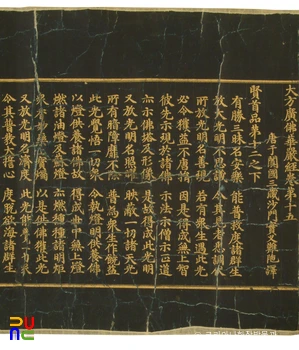 大方廣佛華嚴經卷第十五
唐于闐國三藏沙門實叉難陀譯
賢首品第十二之下
有勝三昧名安樂 能普救度諸群生
放大光明不思議 令其見者悉調伏
所放光明名善現 若有衆生遇此光
必令獲益不唐捐 因是得成無上智
彼先示現於諸佛 示法示僧示正道
亦示佛塔及形像 是故得成此光明
又放光明名照曜 映蔽一切諸天光
所有暗障靡不除 普爲衆生作饒益
此光覺悟一切衆 令執燈明供養佛
以燈供養諸佛故 得成世中無上燈
燃諸油燈及蘇燈 亦燃種種諸明炬
衆香妙藥上寶燭 以是供佛獲此光
又放光明名濟度 此光能覺一切衆
令其普發大誓心 度脫欲海諸群生